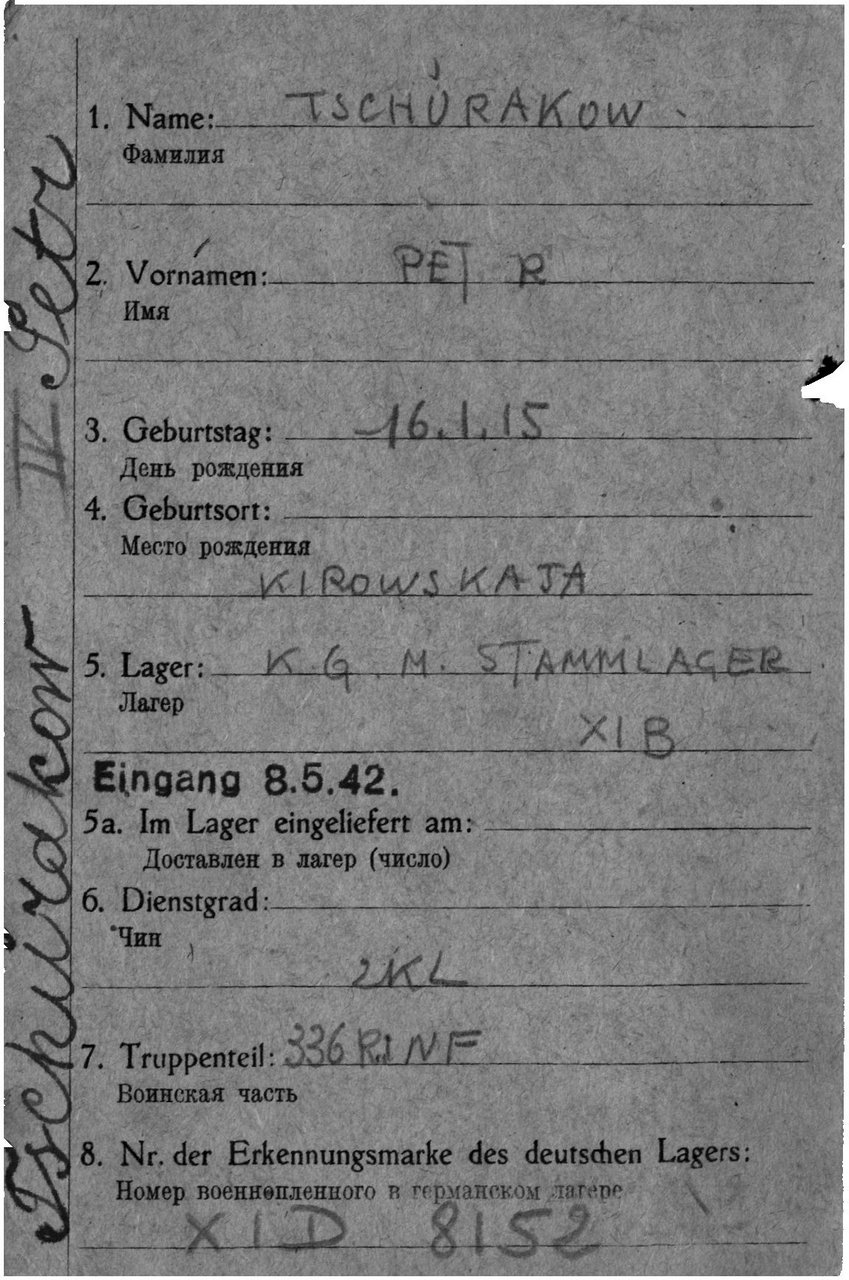 Tschurakow IV Petr
1. Name: TSCHURAKOW
Фамилия
2. Vornamen: PETR
Имя
3. Geburtstag: 16.1.15
День рождения
4. Geburtsort:
Место рождения
KIROWSKAJA
5. Lager: K.G.M. STAMMLAGER
Лагер
XI B
Eingang 8.5.42.
5a. Im Lager eingeliefert am:
Доставлен в лагер (число)
6. Dienstgrad:
Чин
2KL
7. Truppenteil: 336 R.INF
Воинская часть
8. Nr. der Erkennungsmarke des deutschen Lagers:
Номер военнопленного в германском лагере
XI D 8152